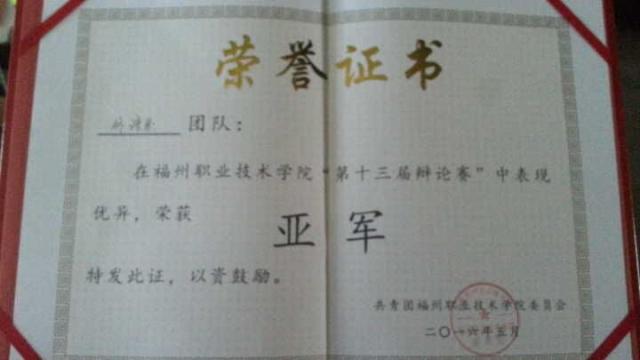 荣誉证书
团队：
在福州职业技术学院“第十三届辩论赛”中表现
优异，荣获
亚军
特发此证，以资鼓励。
共青团福州职业技术学院委员会
二〇一六年五月